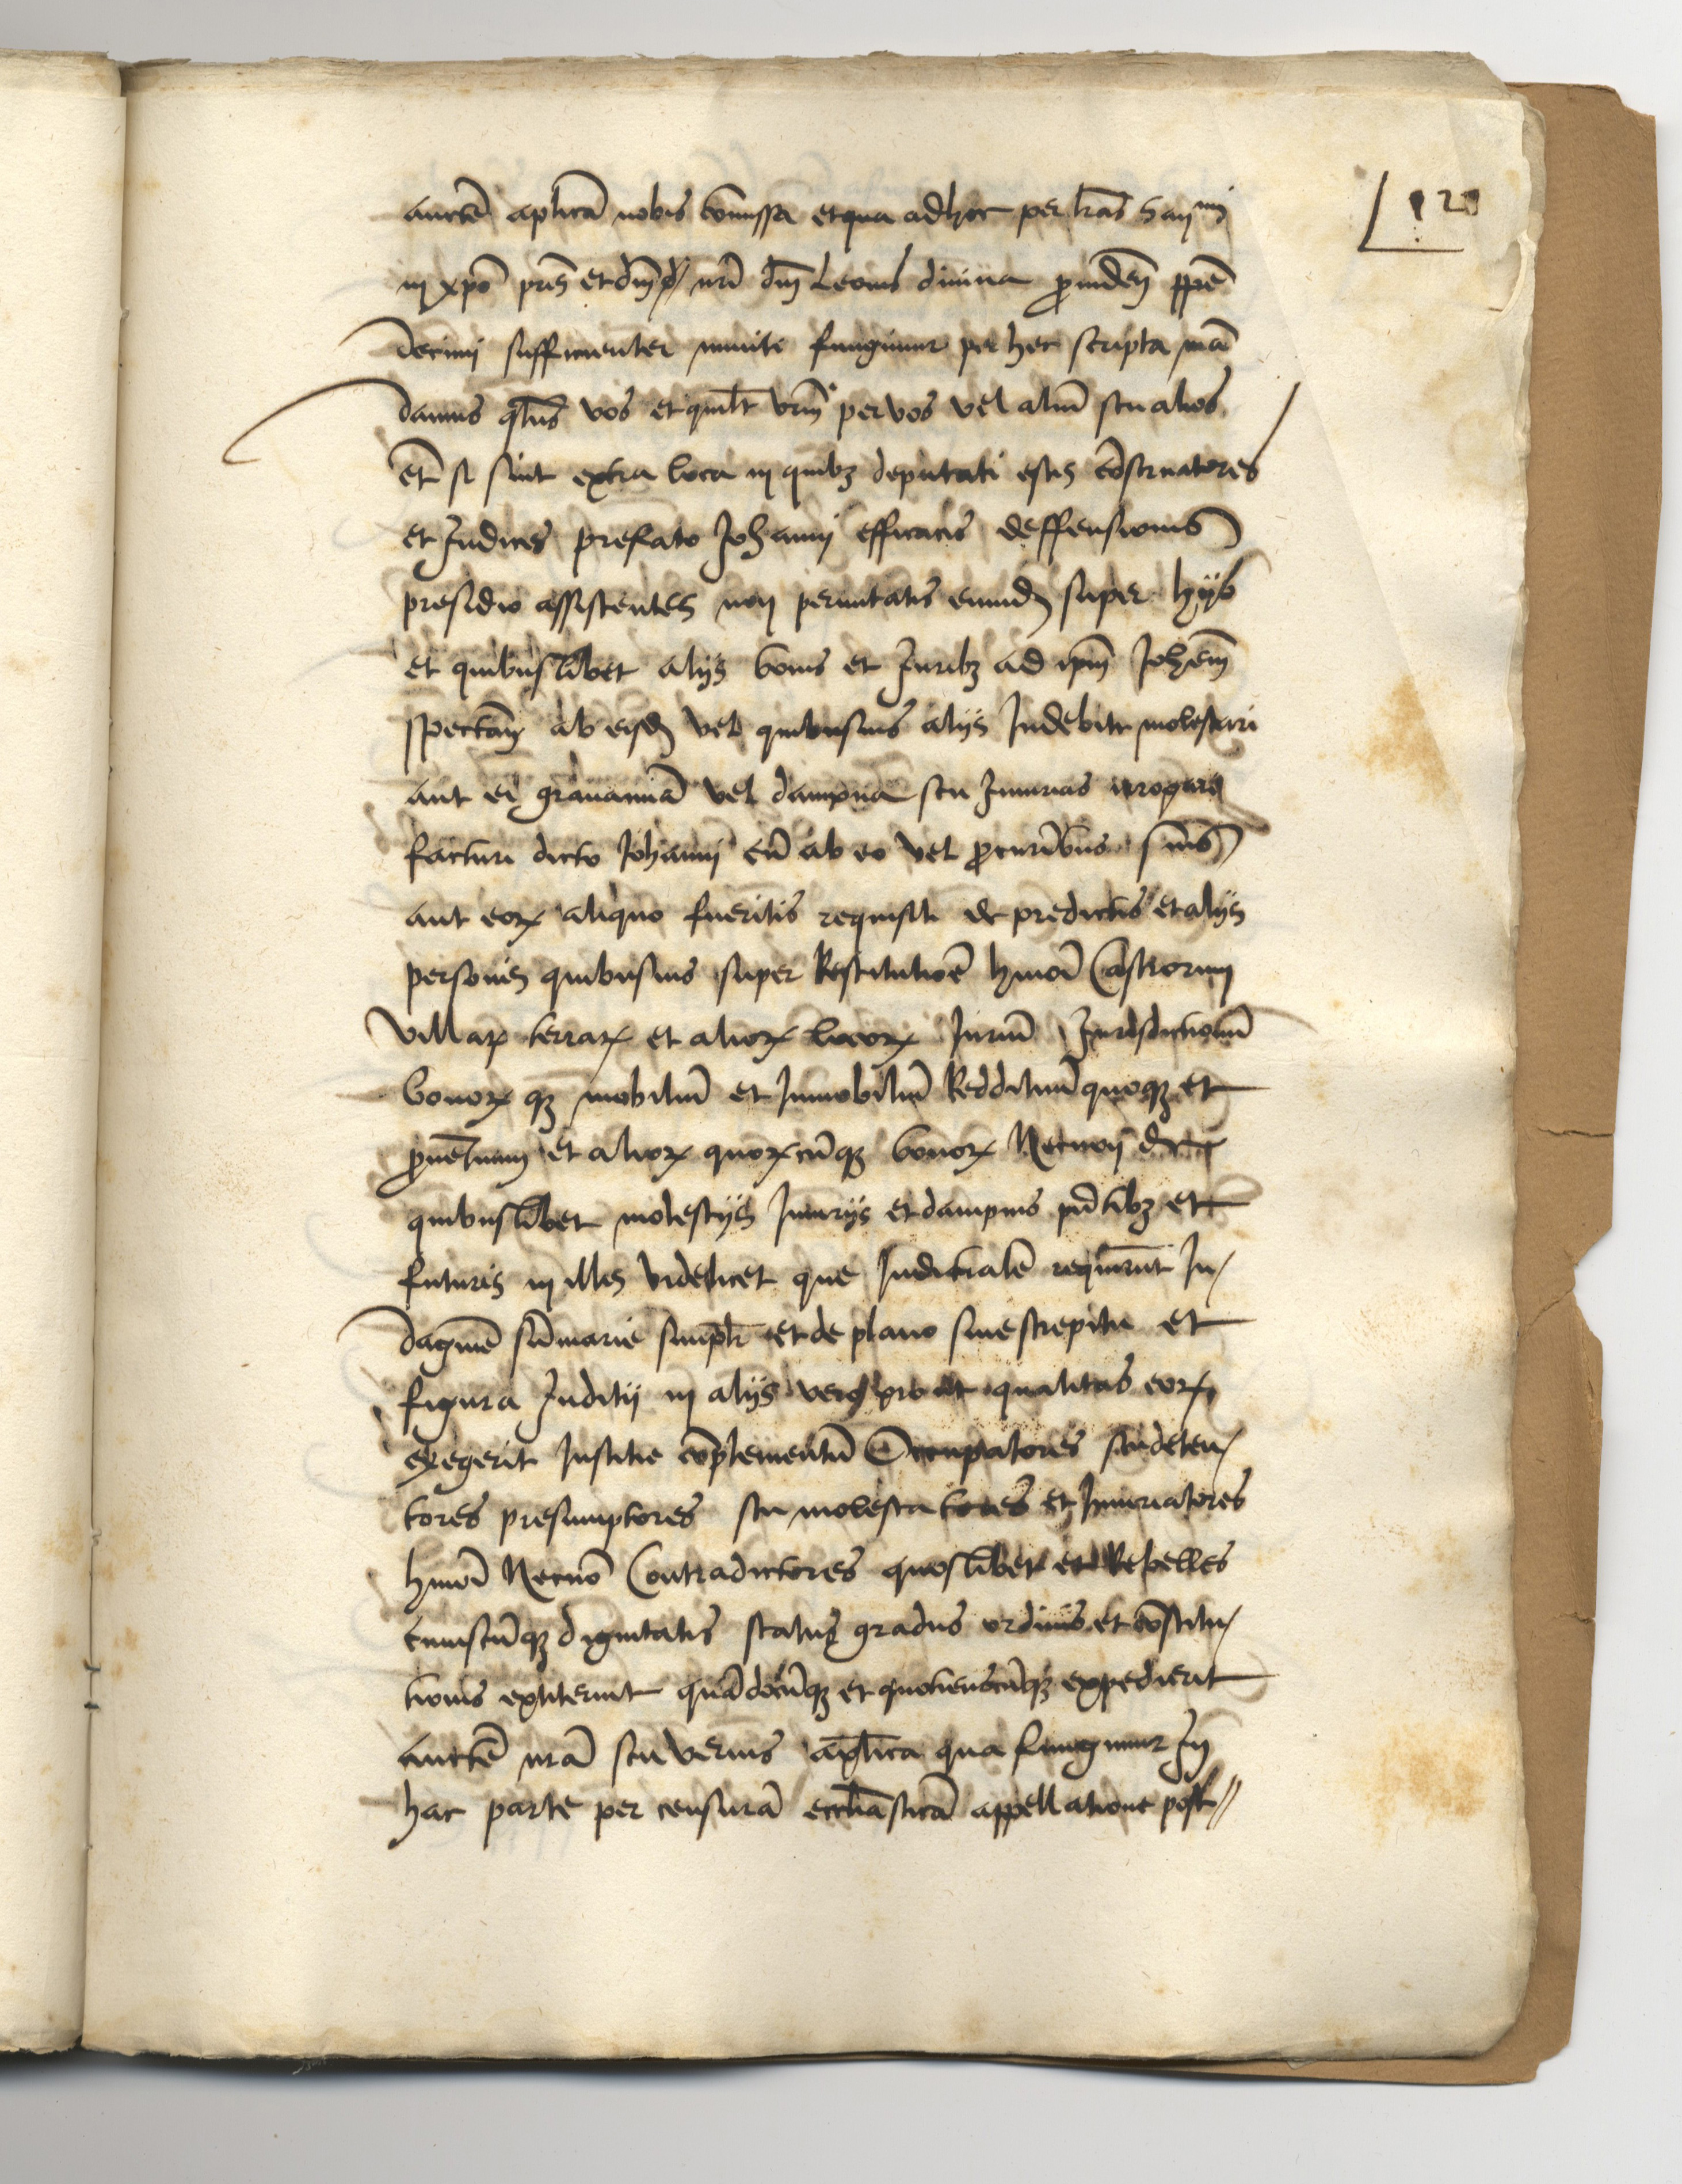 auctē aplicā nobis cōmissa et qua ad hec per lras San mi
in xpo pris et dni nri dni Leonis divina providen ppē
decimi sufficienter muniti fungimur per hec scripta mā
damus qtus vos et quilt vrm per vos vel aliū seu alios
et si sint extra loca in quibz deputati estis cōservatores
et Judices prefato Johanni efficacis deffensionis
presidio assistentes non permitatis eumdz super hijs
et quibuslibet alijs bonis et Juribz ad ipm Johem
spectan ab eisdz vel quibusvis alijs Indebite molestari
aut ei gravamīa vel dampna seu Iniurias irrogari
facturi dicto Johanni cū ab eo vel procuribus suis
aut eorꝝ aliquo fueritis requisiti de predictis et alijs
personis quibusvis super Restitutiōe hmōi Castrorum
villarꝝ terrarꝝ et aliorꝝ locorꝝ Juriū Jurisdictionū
bonorꝝ qz mobiliū et Inmobiliū Reddituū quoqz et
proventuum et aliorꝝ quorꝝcūqz bonorꝝ Necnon de
quibuslibet molestijs Iniurijs et dampnis pntibz et
futuris in illis videlicet que Judicialē requirūt In
daginē sūmarie simplr et de plano sine strepitu et
figura Juditij in alijs vero prout qualitas eorꝝ
exegerit Justitie cōplementū Occupatores seu deten
tores presumptores seu molestatores et Iniuriatores
hmōi Necnō Contradictores quoslibet et Rebelles
cuiuscūqz dignitatis status gradus ordinis et cōstitu
tionis extiterint quādocūqz et quotienscūqz expedierit
auctē nrā seu verius aplica qua fungimur In
hac parte per censurā eccliasticā appellatione post